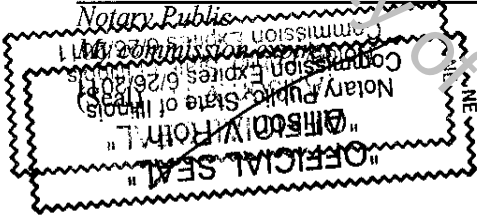 Notary Public
My commission expires
(Seal)
"OFFICIAL SEAL"
Roth
Notary Public, State of Illinois
Commission Expires 6/26/2011
y of